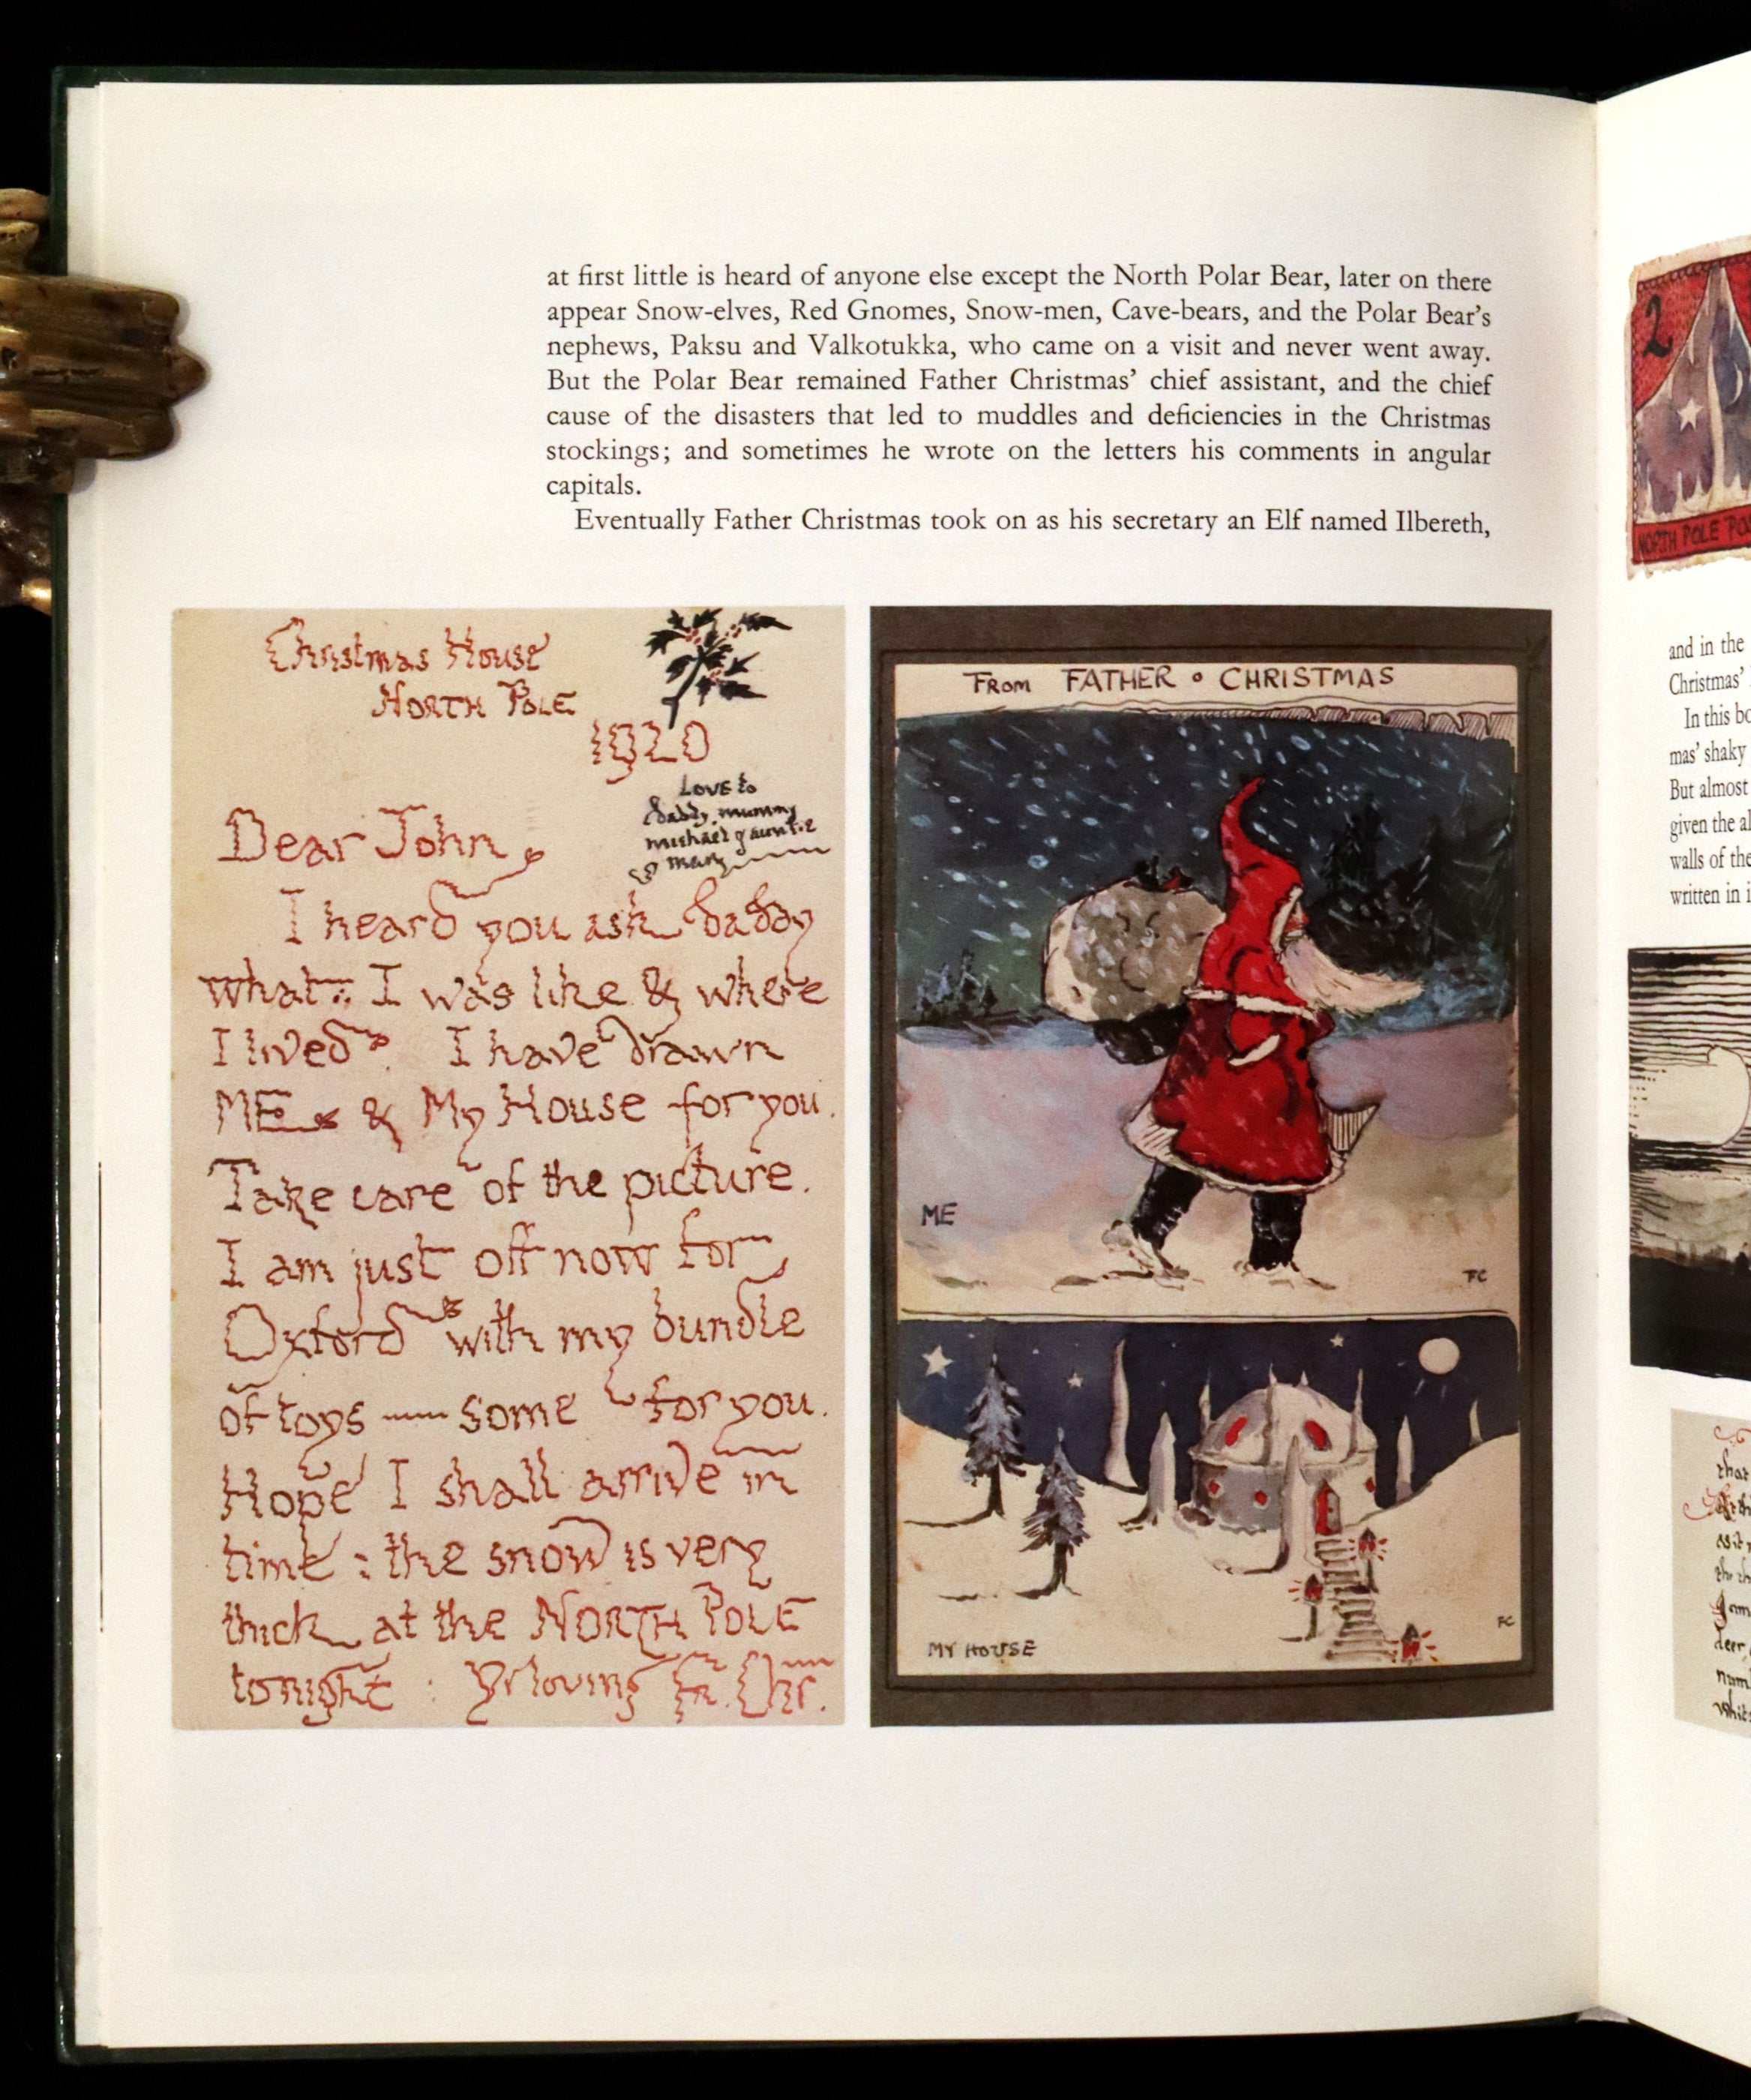 at first little is heard of anyone else except the North Polar Bear, later on there
appear Snow-elves, Red Gnomes, Snow-men, Cave-bears, and the Polar Bear's
nephews, Paksu and Valkotukka, who came on a visit and never went away.
But the Polar Bear remained Father Christmas' chief assistant, and the chief
cause of the disasters that led to muddles and deficiencies in the Christmas
stockings; and sometimes he wrote on the letters his comments in angular
capitals.
Eventually Father Christmas took on as his secretary an Elf named Ilbereth,
Christmas House
NORTH POLE
1920
Love to
daddy, mummy
michael & auntie
mary
Dear John,
I heard you ask daddy
what I was like & where
I lived. I have drawn
ME & My House for you.
Take care of the picture.
I am just off now for
Oxford with my bundle
of toys — some for you.
Hope I shall arrive in
time : the snow is very
thick at the NORTH POLE
tonight : Yr loving Fr. Chr.
FROM FATHER • CHRISTMAS
ME
FC
MY HOUSE
FC
2
NORTH POLE
and in the
Christmas'
In this
mas' shaky
But almost
given the
walls of the
written in
that
deer,